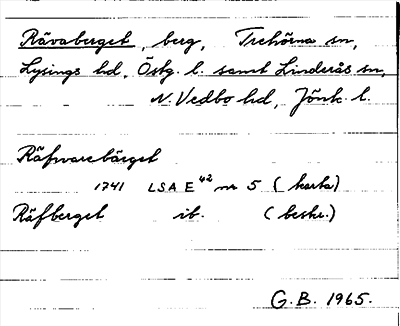 Rävaberget, berg, Trehörna sn,
Lysings hd, Östg. l. samt Linderås sn,
N. Vedbo hd, Jönk. l.
Räfwarebärget
1741 LSA E 42 nr 5 (karta)
Räfberget ib. (beskr.)
G.B. 1965.